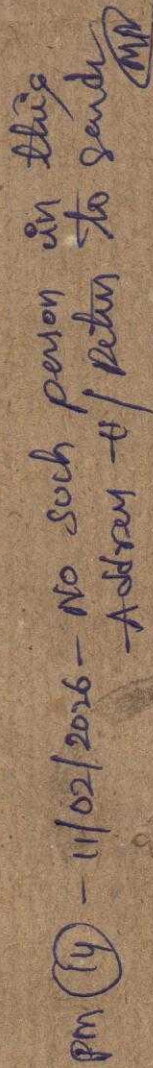 pm (14) - 11/02/2026 - No such person in this
Address # / Return to sender